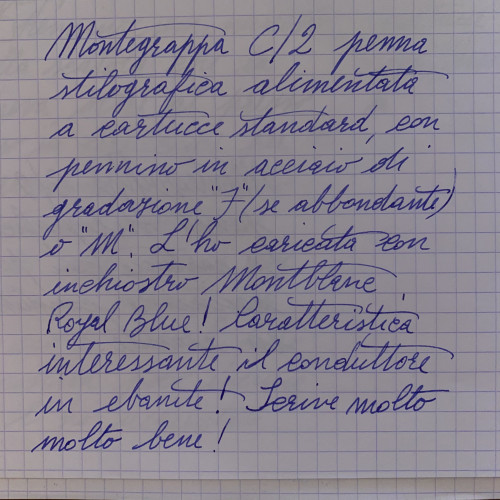 Montegrappa C/2 penna
stilografica alimentata
a cartucce standard, con
pennino in acciaio di
gradazione "F" (se abbondante)
o "M". L'ho caricata con
inchiostro Montblanc
Royal Blue! Caratteristica
interessante il conduttore
in ebanite! Scrive molto
molto bene!